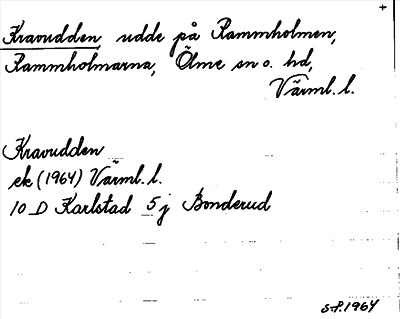 +
Kravudden, udde på Rammholmen,
Rammholmarna, Ölme sn o. hd,
Värml. l.
Kravudden
ek (1964) Värml. l.
10 D Karlstad 5 j Bonderud
S-P. 1964